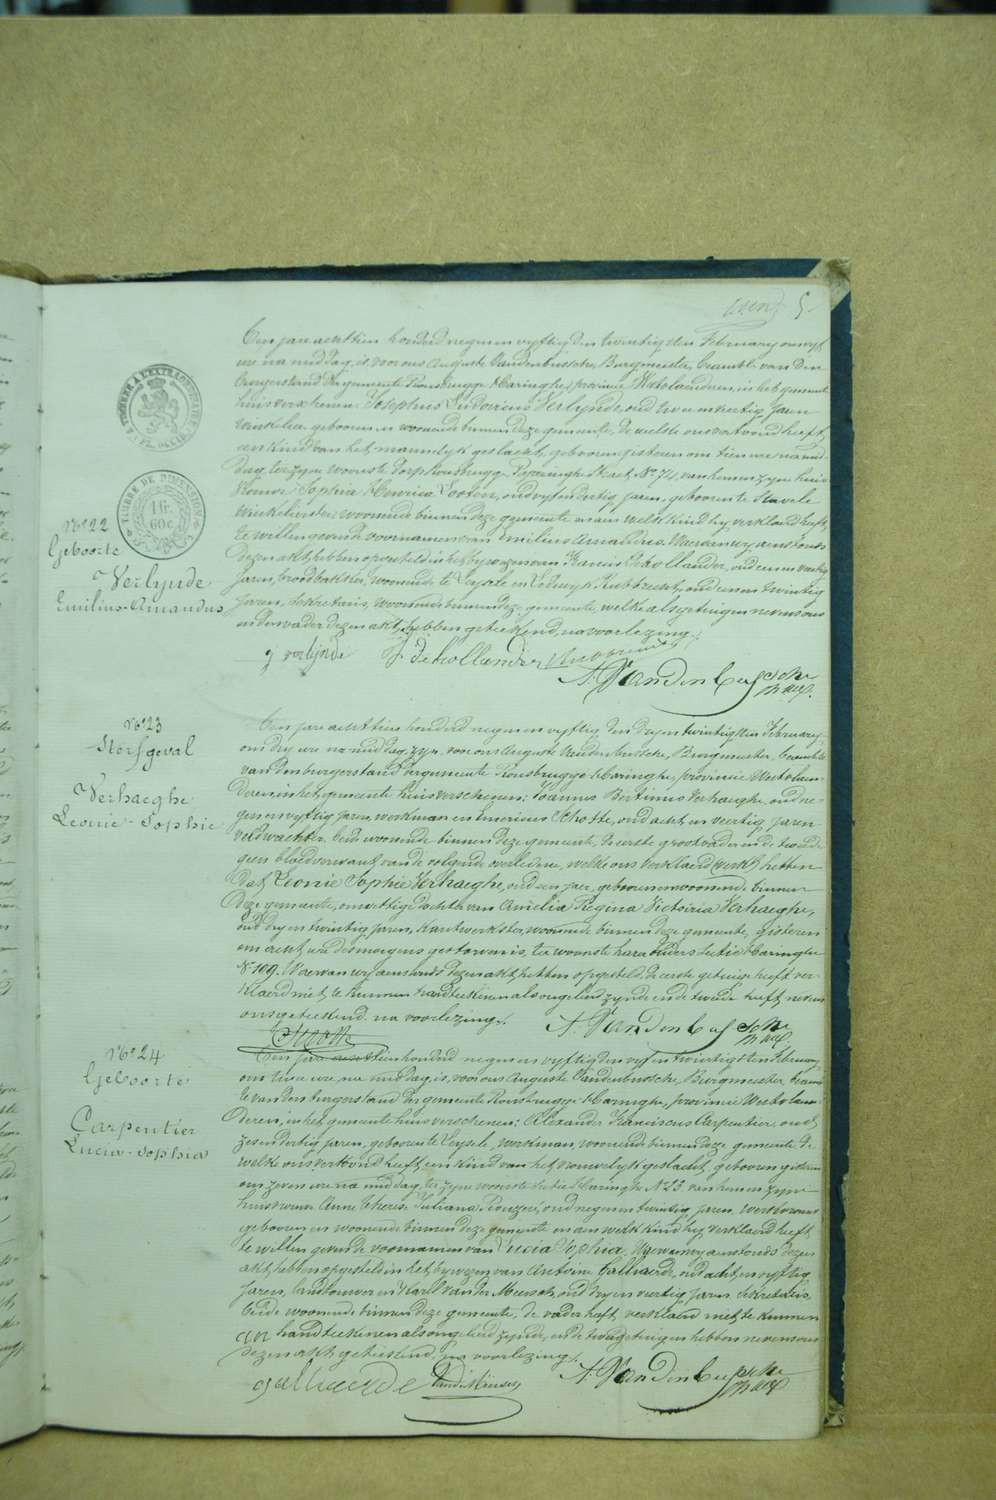 5
Een jaer achttien honderd negen en vyftig den twintigsten February om vyf
ure na middag, is voor ons Auguste Vandenbussche, Burgmeester, beambte van den
Burgerstand der gemeente Rousbrugge-Haringhe, provincie Westvlanderen, in het gemeente
huis verschenen: Josephus Ludovicus Verlynde, oud twee en veertig jaren
winkelier, geboren en woonende binnen deze gemeente, de welke ons vertoond heeft
een kind van het mannelyk geslacht, geboren gisteren om tien ure na mid-
dag, ter zyne woonste dorp Rousbrugg, Poperinghe Straet, No 74, van hem en zyne huis
vrouw Sophia Henrica Looten, oud vyf en dertig jaren, geboren te Stavele
winkelierster, woonende binnen deze gemeente en aen welk kind hy verklaerd heeft
te willen geven de voornamen van Emilius Amandus. Waer van wy aenstonds
dezen akt hebben opgesteld in het bywezen van Francis Dehollander, oud een en veertig
jaren, broodbakker, woonende te Leysele en Lodewyk Hubbrecht, oud een en twintig
jaren, sekretaris, woonende binnen deze gemeente, welke als getuigen nevens ons
en den vader dezen akt hebben geteekend, na voorlezing.
j verlijnde F dehollander
A. Vandenbussche
A TIMBRER A L'EXTRAORDINAIRE
TIMBRE DE DIMENSION
1 fr.
60 c.
No 22
Geboorte
Verlynde
Emilius-Amandus
No 23
Sterfgeval
Verhaeghe
Leonie-Sophie
Een jaer achttien honderd negen en vyftig den dry en twintigsten February
om dry ure na middag, zyn voor ons Auguste Vandenbussche, Burgmeester, beambte
van den burgerstand der gemeente Rousbrugge-Haringhe, provincie Westvlan-
deren, in het gemeente huis verschenen: Joannes Bertinus Verhaeghe, oud ne-
gen en vyftig jaren, werkman en Emericus Schotte, oud acht en veertig jaren
veldwachter, beide woonende binnen deze gemeente, de eerste grootvader en de tweede
geen bloedverwant van de volgende overledene, welke ons verklaerd hebben
dat Leonie Sophie Verhaeghe, oud een jaer, geboren en woonende binnen
deze gemeente, onwettige dochter van Amelia Regina Victoria Verhaeghe,
oud dry en twintig jaren, kantwerkster, woonende binnen deze gemeente, gisteren
om acht ure des morgens gestorven is, ter woonste harer ouders sectie Haringhe
No 109. Waer van wy aenstonds dezen akt hebben opgesteld. De eerste getuige heeft ver-
klaerd niet te kunnen handteekenen als ongeleerd zynde en de tweede heeft nevens
ons geteekend na voorlezing.
A. Vandenbussche
No 24
Geboorte
Carpentier
Lucia-Sophia
Een jaer achttien honderd negen en vyftig den vyf en twintigsten February
om twee ure na middag, is voor ons Auguste Vandenbussche, Burgmeester, beamb-
te van den burgerstand der gemeente Rousbrugge-Haringhe, provincie Westvlaen-
deren, in het gemeente huis verschenen: Alexander Franciscus Carpentier, oud
zeven dertig jaren, geboren te Leysele, werkman, woonende binnen deze gemeente de
welke ons vertoond heeft een kind van het vrouwelyk geslacht, geboren gisteren
om zeven ure na middag, ter zyne woonste sectie Haringhe No 23 van hem en zyne
huisvrouw Anne Therese Juliana oud negen en twintig jaren, werkvrouw
geboren en woonende binnen deze gemeente en aen welk kind hy verklaerd heeft
te willen geven de voornamen van Lucia Sophia. Waer van wy aenstonds dezen
akt hebben opgesteld in het bywezen van Antoine Galliaerde, oud acht en vyftig
jaren, landbouwer en Karel van der Meersch, oud dry en veertig jaren, sekretaris,
beide woonende binnen deze gemeente, de vader heeft verklaerd niet te kunnen
handteekenen als ongeleerd zynde, en de twee getuigen hebben nevens ons
dezen akt geteekend na voorlezing.
galliaerde
A. Vandenbussche